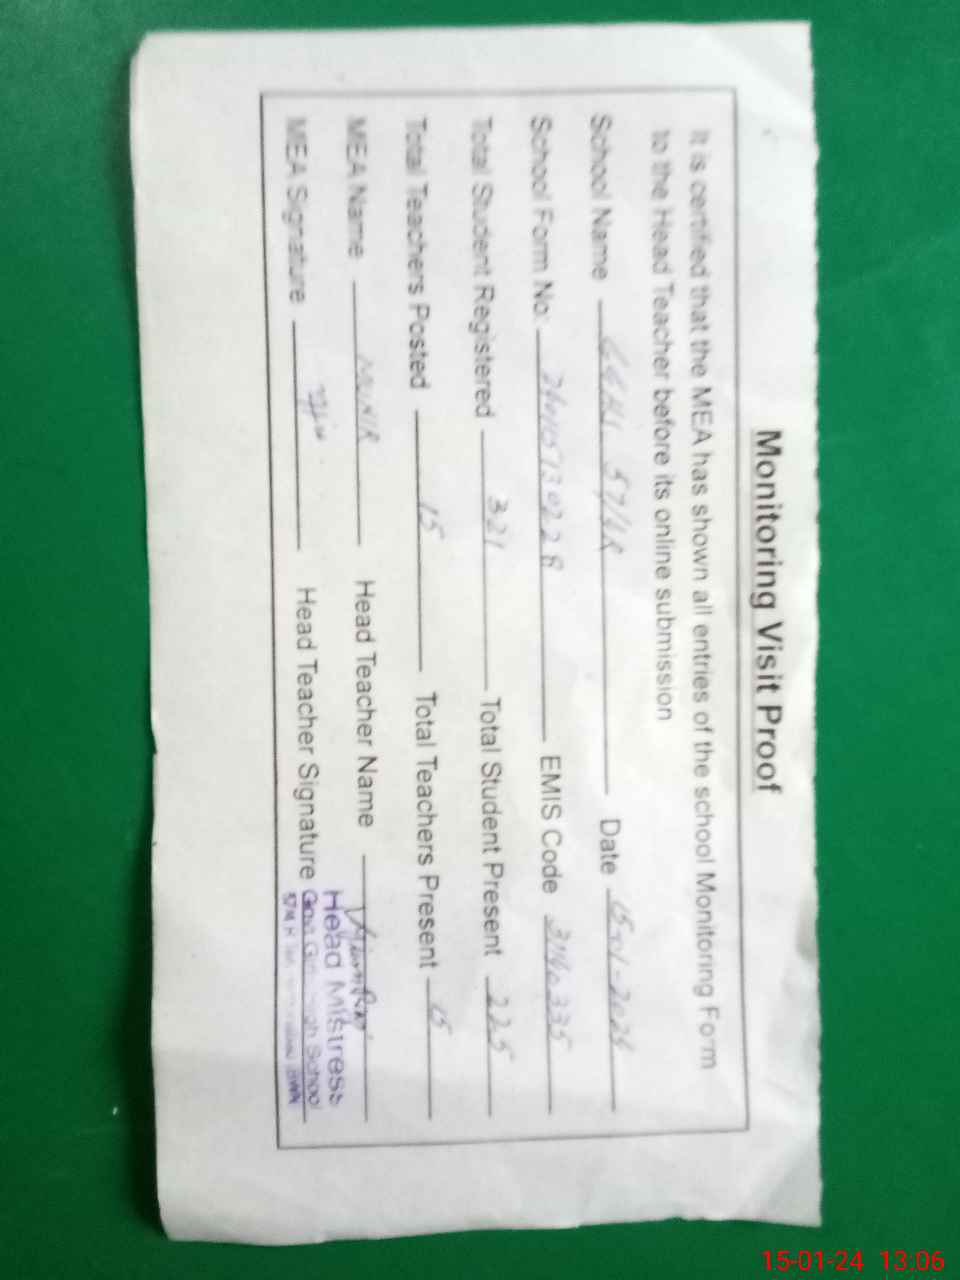 Monitoring Visit Proof
It is certified that the MEA has shown all entries of the school Monitoring Form
to the Head Teacher before its online submission
School Name GGHS 57/4R Date 15-01-2024
School Form No: EMIS Code
Total Student Registered 321 Total Student Present 225
Total Teachers Posted 15 Total Teachers Present 15
MEA Name MUNIR Head Teacher Name
MEA Signature Head Teacher Signature
Head Mistress
Govt Girls High School
15-01-24 13:06